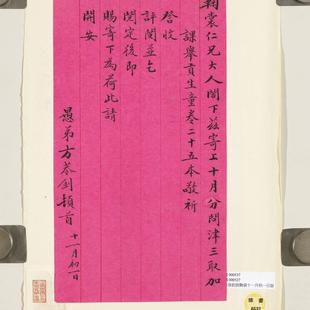 鞠裳仁兄大人閣下茲寄上十月分問津三取加
課舉貢生童卷二十五本敬祈
詧收
評閱並乞
閱定後即
賜寄下為荷此請
開安
愚弟方恭釗頓首
十一月初一日